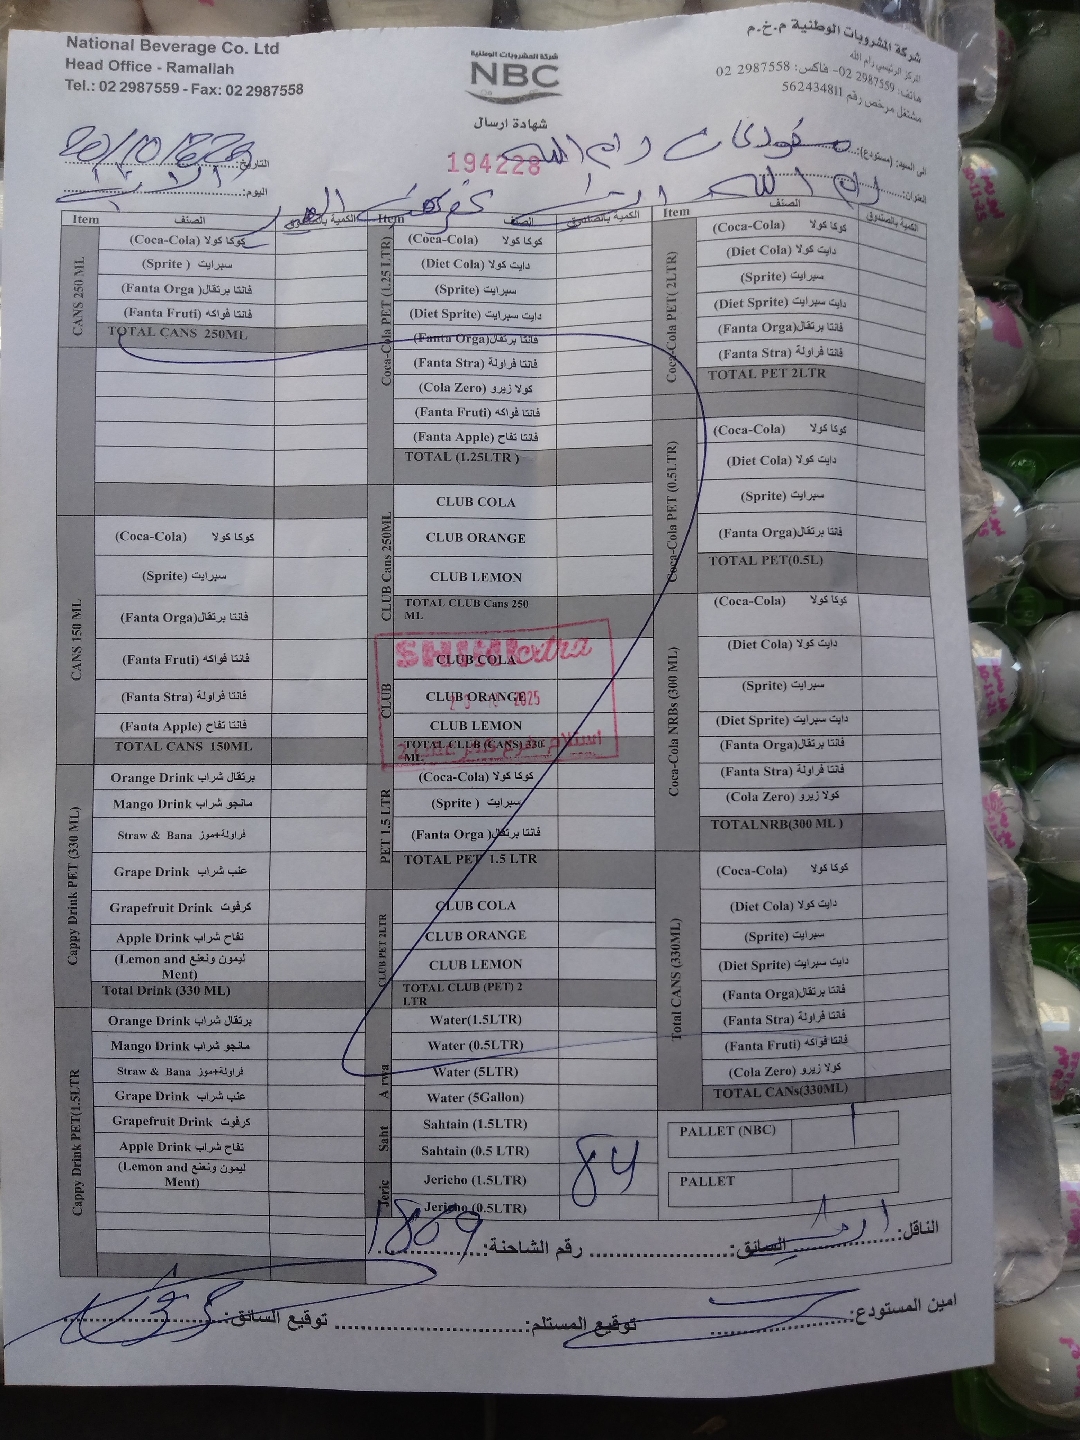 National Beverage Co. Ltd
Head Office - Ramallah
Tel.: 02 2987559 - Fax: 02 2987558
شركة المشروبات الوطنية
NBC
شركة المشروبات الوطنية م.خ.م
المركز الرئيسي رام الله
هاتف: 2987559 02- فاكس: 2987558 02
مشتغل مرخص رقم 562434811
شهادة ارسال
194228
الى السيد: (مستودع): رام الله
العنوان: رام الله
التاريخ: 20/10/
اليوم:
Item الصنف الكمية بالصندوق
CANS 250 ML
(Coca-Cola) كوكا كولا
(Sprite ) سبرايت
(Fanta Orga )فانتا برتقال
(Fanta Fruti) فانتا فواكه
TOTAL CANS 250ML
CANS 150 ML
(Coca-Cola) كوكا كولا
(Sprite) سبرايت
(Fanta Orga)فانتا برتقال
(Fanta Fruti) فانتا فواكه
(Fanta Stra) فانتا فراولة
(Fanta Apple) فانتا تفاح
TOTAL CANS 150ML
Cappy Drink PET (330 ML)
Orange Drink برتقال شراب
Mango Drink مانجو شراب
Straw & Bana فراولة+موز
Grape Drink عنب شراب
Grapefruit Drink كرفوت
Apple Drink تفاح شراب
(Lemon and ليمون ونعنع
Ment)
Total Drink (330 ML)
Cappy Drink PET(1.5LTR
Orange Drink برتقال شراب
Mango Drink مانجو شراب
Straw & Bana فراولة+موز
Grape Drink عنب شراب
Grapefruit Drink كرفوت
Apple Drink تفاح شراب
(Lemon and ليمون ونعنع
Ment)
Item الصنف الكمية بالصندوق
Coca-Cola PET (1.25 LTR)
(Coca-Cola) كوكا كولا
(Diet Cola) دايت كولا
(Sprite) سبرايت
(Diet Sprite) دايت سبرايت
(Fanta Orga)فانتا برتقال
(Fanta Stra) فانتا فراولة
(Cola Zero) كولا زيرو
(Fanta Fruti) فانتا فواكه
(Fanta Apple) فانتا تفاح
TOTAL (1.25LTR )
CLUB Cans 250ML
CLUB COLA
CLUB ORANGE
CLUB LEMON
TOTAL CLUB Cans 250
ML
CLUB
CLUB COLA
CLUB ORANGE
CLUB LEMON
TOTAL CLUB (CANS) 330
ML
SHINI extra
2025
استلام فرع
PET 1.5 LTR
(Coca-Cola) كوكا كولا
(Sprite ) سبرايت
(Fanta Orga )فانتا برتقال
TOTAL PET 1.5 LTR
CLUB PET 2LTR
CLUB COLA
CLUB ORANGE
CLUB LEMON
TOTAL CLUB (PET) 2
LTR
Arwa
Water(1.5LTR)
Water (0.5LTR)
Water (5LTR)
Water (5Gallon)
Saht
Sahtain (1.5LTR)
Sahtain (0.5 LTR)
Jeric
Jericho (1.5LTR)
Jericho (0.5LTR)
84
Item الصنف الكمية بالصندوق
Coca-Cola PET( 2LTR)
(Coca-Cola) كوكا كولا
(Diet Cola) دايت كولا
(Sprite) سبرايت
(Diet Sprite) دايت سبرايت
(Fanta Orga)فانتا برتقال
(Fanta Stra) فانتا فراولة
TOTAL PET 2LTR
Coca-Cola PET (0.5LTR)
(Coca-Cola) كوكا كولا
(Diet Cola) دايت كولا
(Sprite) سبرايت
(Fanta Orga)فانتا برتقال
TOTAL PET(0.5L)
Coca-Cola NRBs (300 ML)
(Coca-Cola) كوكا كولا
(Diet Cola) دايت كولا
(Sprite) سبرايت
(Diet Sprite) دايت سبرايت
(Fanta Orga)فانتا برتقال
(Fanta Stra) فانتا فراولة
(Cola Zero) كولا زيرو
TOTALNRB(300 ML )
Total CANS (330ML)
(Coca-Cola) كوكا كولا
(Diet Cola) دايت كولا
(Sprite) سبرايت
(Diet Sprite) دايت سبرايت
(Fanta Orga)فانتا برتقال
(Fanta Stra) فانتا فراولة
(Fanta Fruti) فانتا فواكه
(Cola Zero) كولا زيرو
TOTAL CANs(330ML)
PALLET (NBC) 1
PALLET
الناقل: السائق: رقم الشاحنة: 1869
امين المستودع: توقيع المستلم: توقيع السائق: